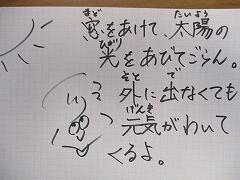 窓をあけて、太陽の
光をあびてごらん。
外に出なくても
元気がわいて
くるよ。